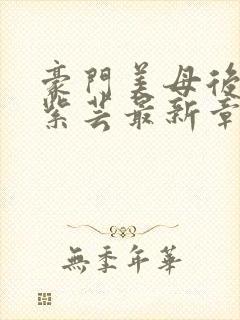 豪門美母後
紫芸最新章
無季年華